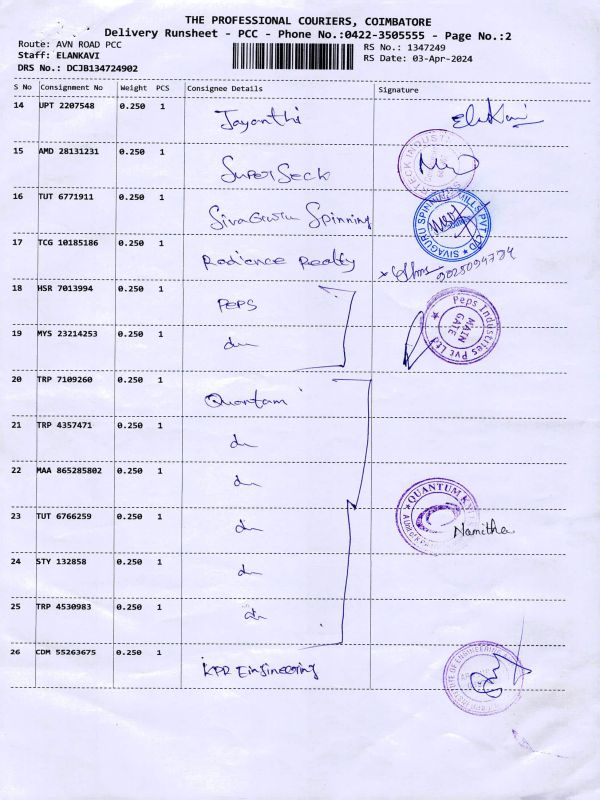 THE PROFESSIONAL COURIERS, COIMBATORE
Delivery Runsheet - PCC - Phone No.:0422-3505555 - Page No.:2
Route: AVN ROAD PCC
RS No.: 1347249
Staff: ELANKAVI
RS Date: 03-Apr-2024
DRS No.: DCJB134724902
S No Consignment No Weight PCS Consignee Details Signature
14 UPT 2207548 0.250 1 Jayanthi
15 AMD 28131231 0.250 1 SuperSeck
16 TUT 6771911 0.250 1 SivaGuru Spinning
SIVAGURU SPINNING MILLS PVT LTD
17 TCG 10185186 0.250 1 Radience Realty
18 HSR 7013994 0.250 1 PEPS
Peps Industries Pvt Ltd
MAIN
GATE
19 MYS 23214253 0.250 1 do
20 TRP 7109260 0.250 1 Quantam
21 TRP 4357471 0.250 1 do
22 MAA 865285802 0.250 1 do
QUANTUM
23 TUT 6766259 0.250 1 do Namitha
24 STY 132858 0.250 1 do
25 TRP 4530983 0.250 1 do
26 CDM 55263675 0.250 1 KPR Eingineering
INSTITUTE OF ENGINEERING